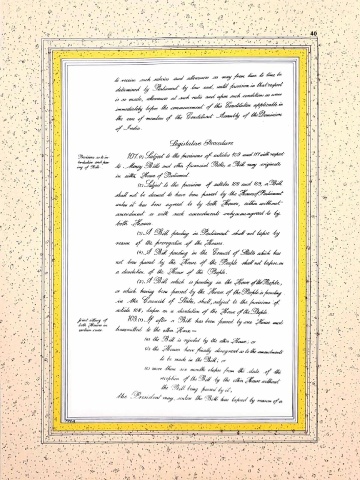 40
to receive such salaries and allowances as may from time to time be
determined by Parliament by law and, until provision in that respect
is so made, allowances at such rates and upon such conditions as were
immediately before the commencement of this Constitution applicable in
the case of members of the Constituent Assembly of the Dominion
of India.
Legislative Procedure
Provisions as to in-
troduction and pass-
ing of Bills.
107. (1) Subject to the provisions of articles 109 and 117 with respect
to Money Bills and other financial Bills, a Bill may originate
in either House of Parliament.
(2) Subject to the provisions of articles 108 and 109, a Bill
shall not be deemed to have been passed by the Houses of Parliament
unless it has been agreed to by both Houses, either without
amendment or with such amendments only as are agreed to by
both Houses.
(3) A Bill pending in Parliament shall not lapse by
reason of the prorogation of the Houses.
(4) A Bill pending in the Council of States which has
not been passed by the House of the People shall not lapse on
a dissolution of the House of the People.
(5) A Bill which is pending in the House of the People,
or which having been passed by the House of the People is pending
in the Council of States, shall, subject to the provisions of
article 108, lapse on a dissolution of the House of the People.
Joint sitting of
both Houses in
certain cases.
108. (1) If after a Bill has been passed by one House and
transmitted to the other House—
(a) the Bill is rejected by the other House; or
(b) the Houses have finally disagreed as to the amendments
to be made in the Bill; or
(c) more than six months elapse from the date of the
reception of the Bill by the other House without
the Bill being passed by it,
the President may, unless the Bill has lapsed by reason of a